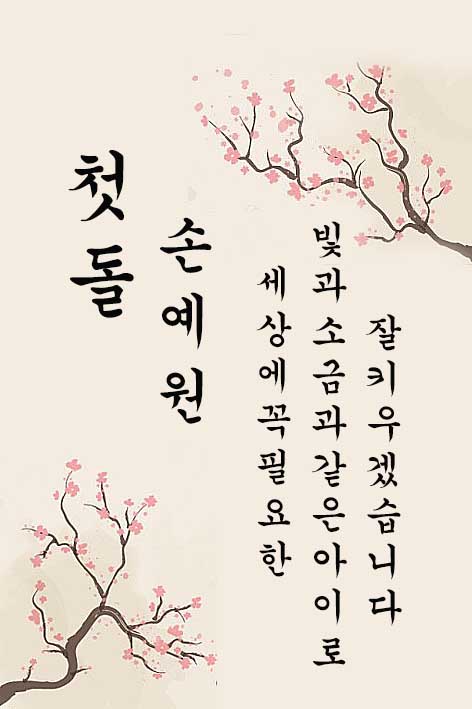 첫돌
손예원
세상에꼭필요한
빛과소금과같은아이로
잘키우겠습니다